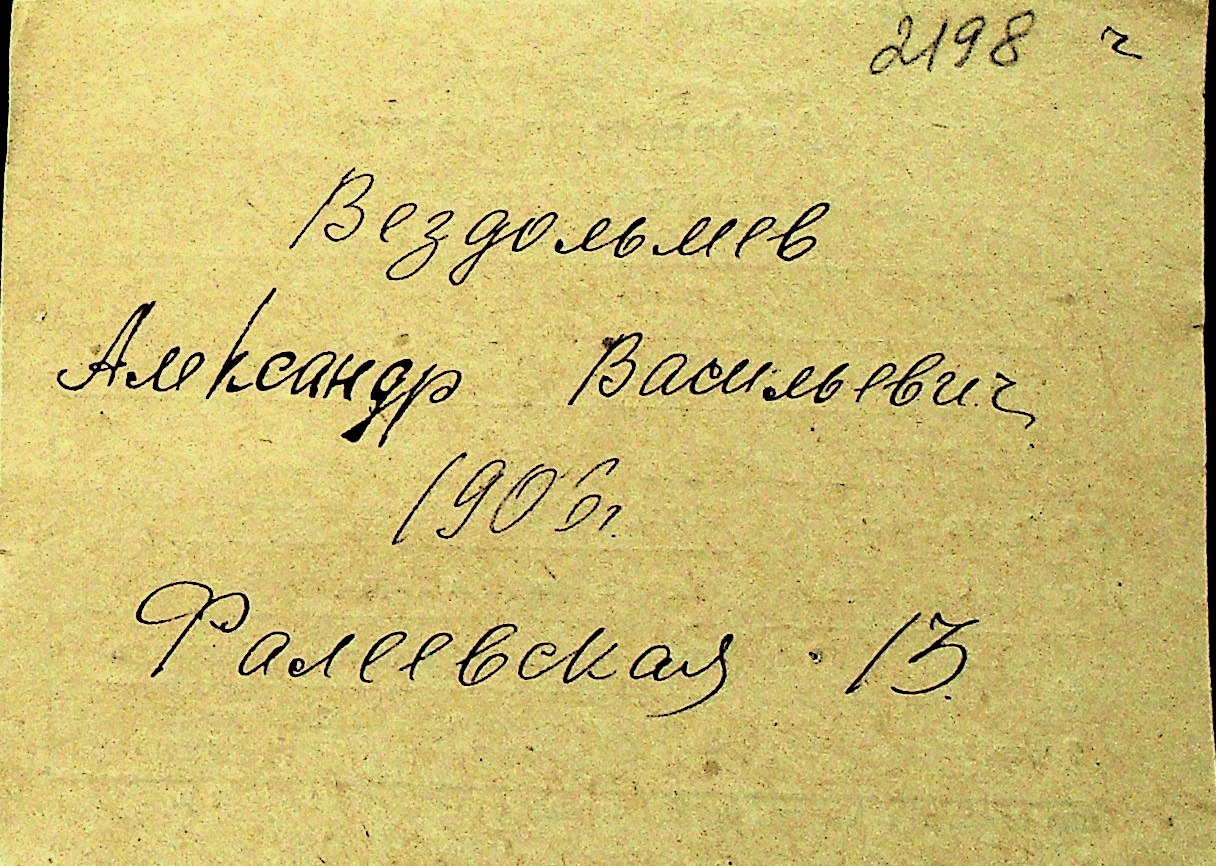 2198 ч
Вездольмев
Александр Васильевич
1906г.
Фалеевская 13